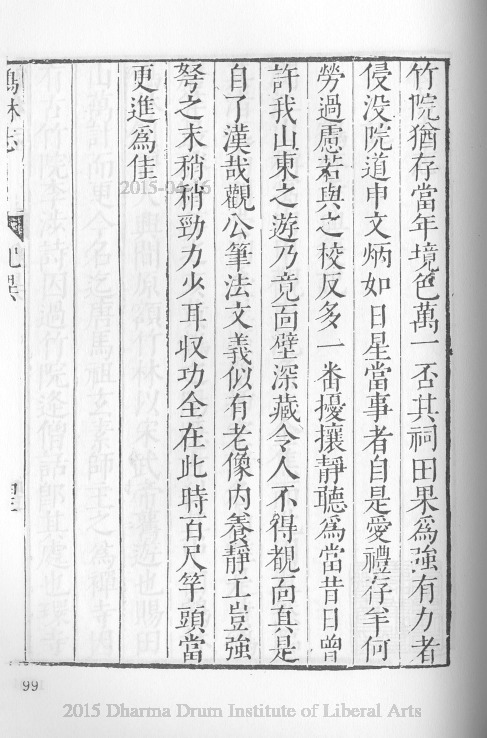 竹院猶存當年境色萬一否其祠田果為強有力者
侵没院道申文炳如日星當事者自是愛禮存羊何
勞過慮若與之校反多一番擾攘靜聽為當昔日曾
許我山東之遊乃竟面壁深藏令人不得覩面真是
自了漢哉觀公筆法文義似有老像內養靜工豈強
弩之末稍稍勁力少耳収功全在此時百尺竿頭當
更進為佳
鶴林志
記異
99
2015 Dharma Drum Institute of Liberal Arts